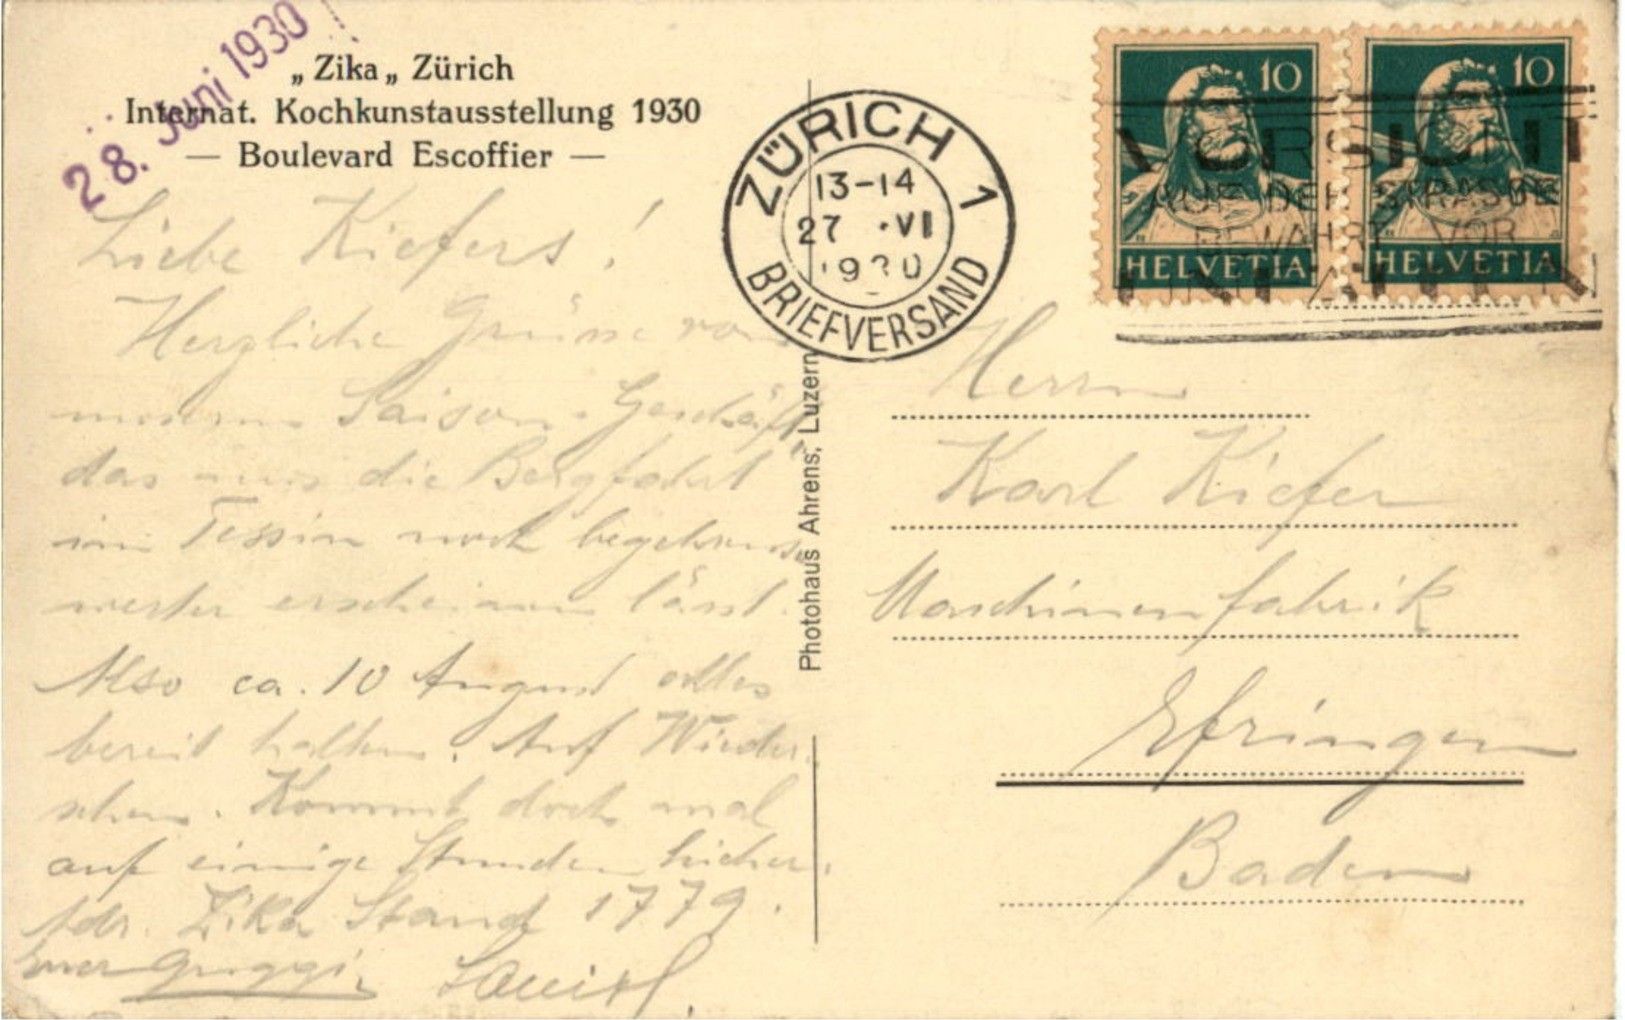 28. Juni 1930
„Zika„ Zürich
Internat. Kochkunstausstellung 1930
— Boulevard Escoffier —
Liebe Kiefers!
Herzliche Grüsse von
unserm Saison-Geschäft
das uns die Bergfahrt
im Tessin noch begehrens-
werter erscheinen lässt.
Also ca. 10 August alles
bereit halten. Auf Wieder-
sehen. Kommt doch mal
auf einige Stunden hieher.
Adr. Zika Stand 1779.
Euer
Photohaus Ahrens, Luzern
ZÜRICH 1
13-14
27 .VI
1930
BRIEFVERSAND
10
HELVETIA
10
HELVETIA
VORSICHT
AUF DER STRASSE
BEWAHRT VOR
Herrn
Karl Kiefer
Maschinenfabrik
Efringen
Baden